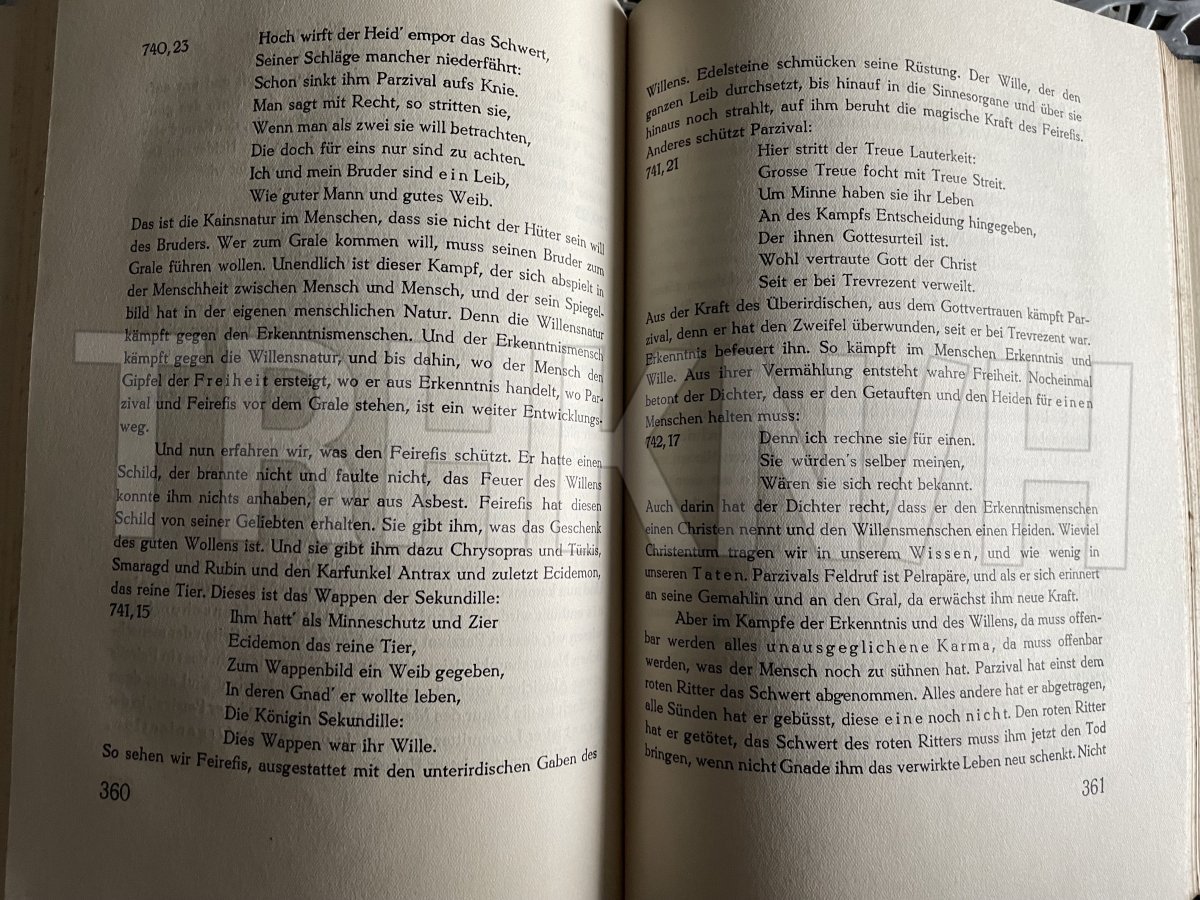 740,23
Hoch wirft der Heid' empor das Schwert,
Seiner Schläge mancher niederfährt:
Schon sinkt ihm Parzival aufs Knie.
Man sagt mit Recht, so stritten sie,
Wenn man als zwei sie will betrachten,
Die doch für eins nur sind zu achten.
Ich und mein Bruder sind ein Leib,
Wie guter Mann und gutes Weib.
Das ist die Kainsnatur im Menschen, dass sie nicht der Hüter sein will
des Bruders. Wer zum Grale kommen will, muss seinen Bruder zum
Grale führen wollen. Unendlich ist dieser Kampf, der sich abspielt in
der Menschheit zwischen Mensch und Mensch, und der sein Spiegel-
bild hat in der eigenen menschlichen Natur. Denn die Willensnatur
kämpft gegen den Erkenntnismenschen. Und der Erkenntnismensch
kämpft gegen die Willensnatur, und bis dahin, wo der Mensch den
Gipfel der Freiheit ersteigt, wo er aus Erkenntnis handelt, wo Par-
zival und Feirefis vor dem Grale stehen, ist ein weiter Entwicklungs-
weg.
Und nun erfahren wir, was den Feirefis schützt. Er hatte einen
Schild, der brannte nicht und faulte nicht, das Feuer des Willens
konnte ihm nichts anhaben, er war aus Asbest. Feirefis hat diesen
Schild von seiner Geliebten erhalten. Sie gibt ihm, was das Geschenk
des guten Wollens ist. Und sie gibt ihm dazu Chrysopras und Türkis,
Smaragd und Rubin und den Karfunkel Antrax und zuletzt Ecidemon,
das reine Tier. Dieses ist das Wappen der Sekundille:
741,15
Ihm hatt' als Minneschutz und Zier
Ecidemon das reine Tier,
Zum Wappenbild ein Weib gegeben,
In deren Gnad' er wollte leben,
Die Königin Sekundille:
Dies Wappen war ihr Wille.
So sehen wir Feirefis, ausgestattet mit den unterirdischen Gaben des
360
Willens. Edelsteine schmücken seine Rüstung. Der Wille, der den
ganzen Leib durchsetzt, bis hinauf in die Sinnesorgane und über sie
hinaus noch strahlt, auf ihm beruht die magische Kraft des Feirefis.
Anderes schützt Parzival:
741,21
Hier stritt der Treue Lauterkeit:
Grosse Treue focht mit Treue Streit.
Um Minne haben sie ihr Leben
An des Kampfs Entscheidung hingegeben,
Der ihnen Gottesurteil ist.
Wohl vertraute Gott der Christ
Seit er bei Trevrezent verweilt.
Aus der Kraft des Überirdischen, aus dem Gottvertrauen kämpft Par-
zival, denn er hat den Zweifel überwunden, seit er bei Trevrezent war.
Erkenntnis befeuert ihn. So kämpft im Menschen Erkenntnis und
Wille. Aus ihrer Vermählung entsteht wahre Freiheit. Nocheinmal
betont der Dichter, dass er den Getauften und den Heiden für einen
Menschen halten muss:
742,17
Denn ich rechne sie für einen.
Sie würden's selber meinen,
Wären sie sich recht bekannt.
Auch darin hat der Dichter recht, dass er den Erkenntnismenschen
einen Christen nennt und den Willensmenschen einen Heiden. Wieviel
Christentum tragen wir in unserem Wissen, und wie wenig in
unseren Taten. Parzivals Feldruf ist Pelrapäre, und als er sich erinnert
an seine Gemahlin und an den Gral, da erwächst ihm neue Kraft.
Aber im Kampfe der Erkenntnis und des Willens, da muss offen-
bar werden alles unausgeglichene Karma, da muss offenbar
werden, was der Mensch noch zu sühnen hat. Parzival hat einst dem
roten Ritter das Schwert abgenommen. Alles andere hat er abgetragen,
alle Sünden hat er gebüsst, diese eine noch nicht. Den roten Ritter
hat er getötet, das Schwert des roten Ritters muss ihm jetzt den Tod
bringen, wenn nicht Gnade ihm das verwirkte Leben neu schenkt. Nicht
361